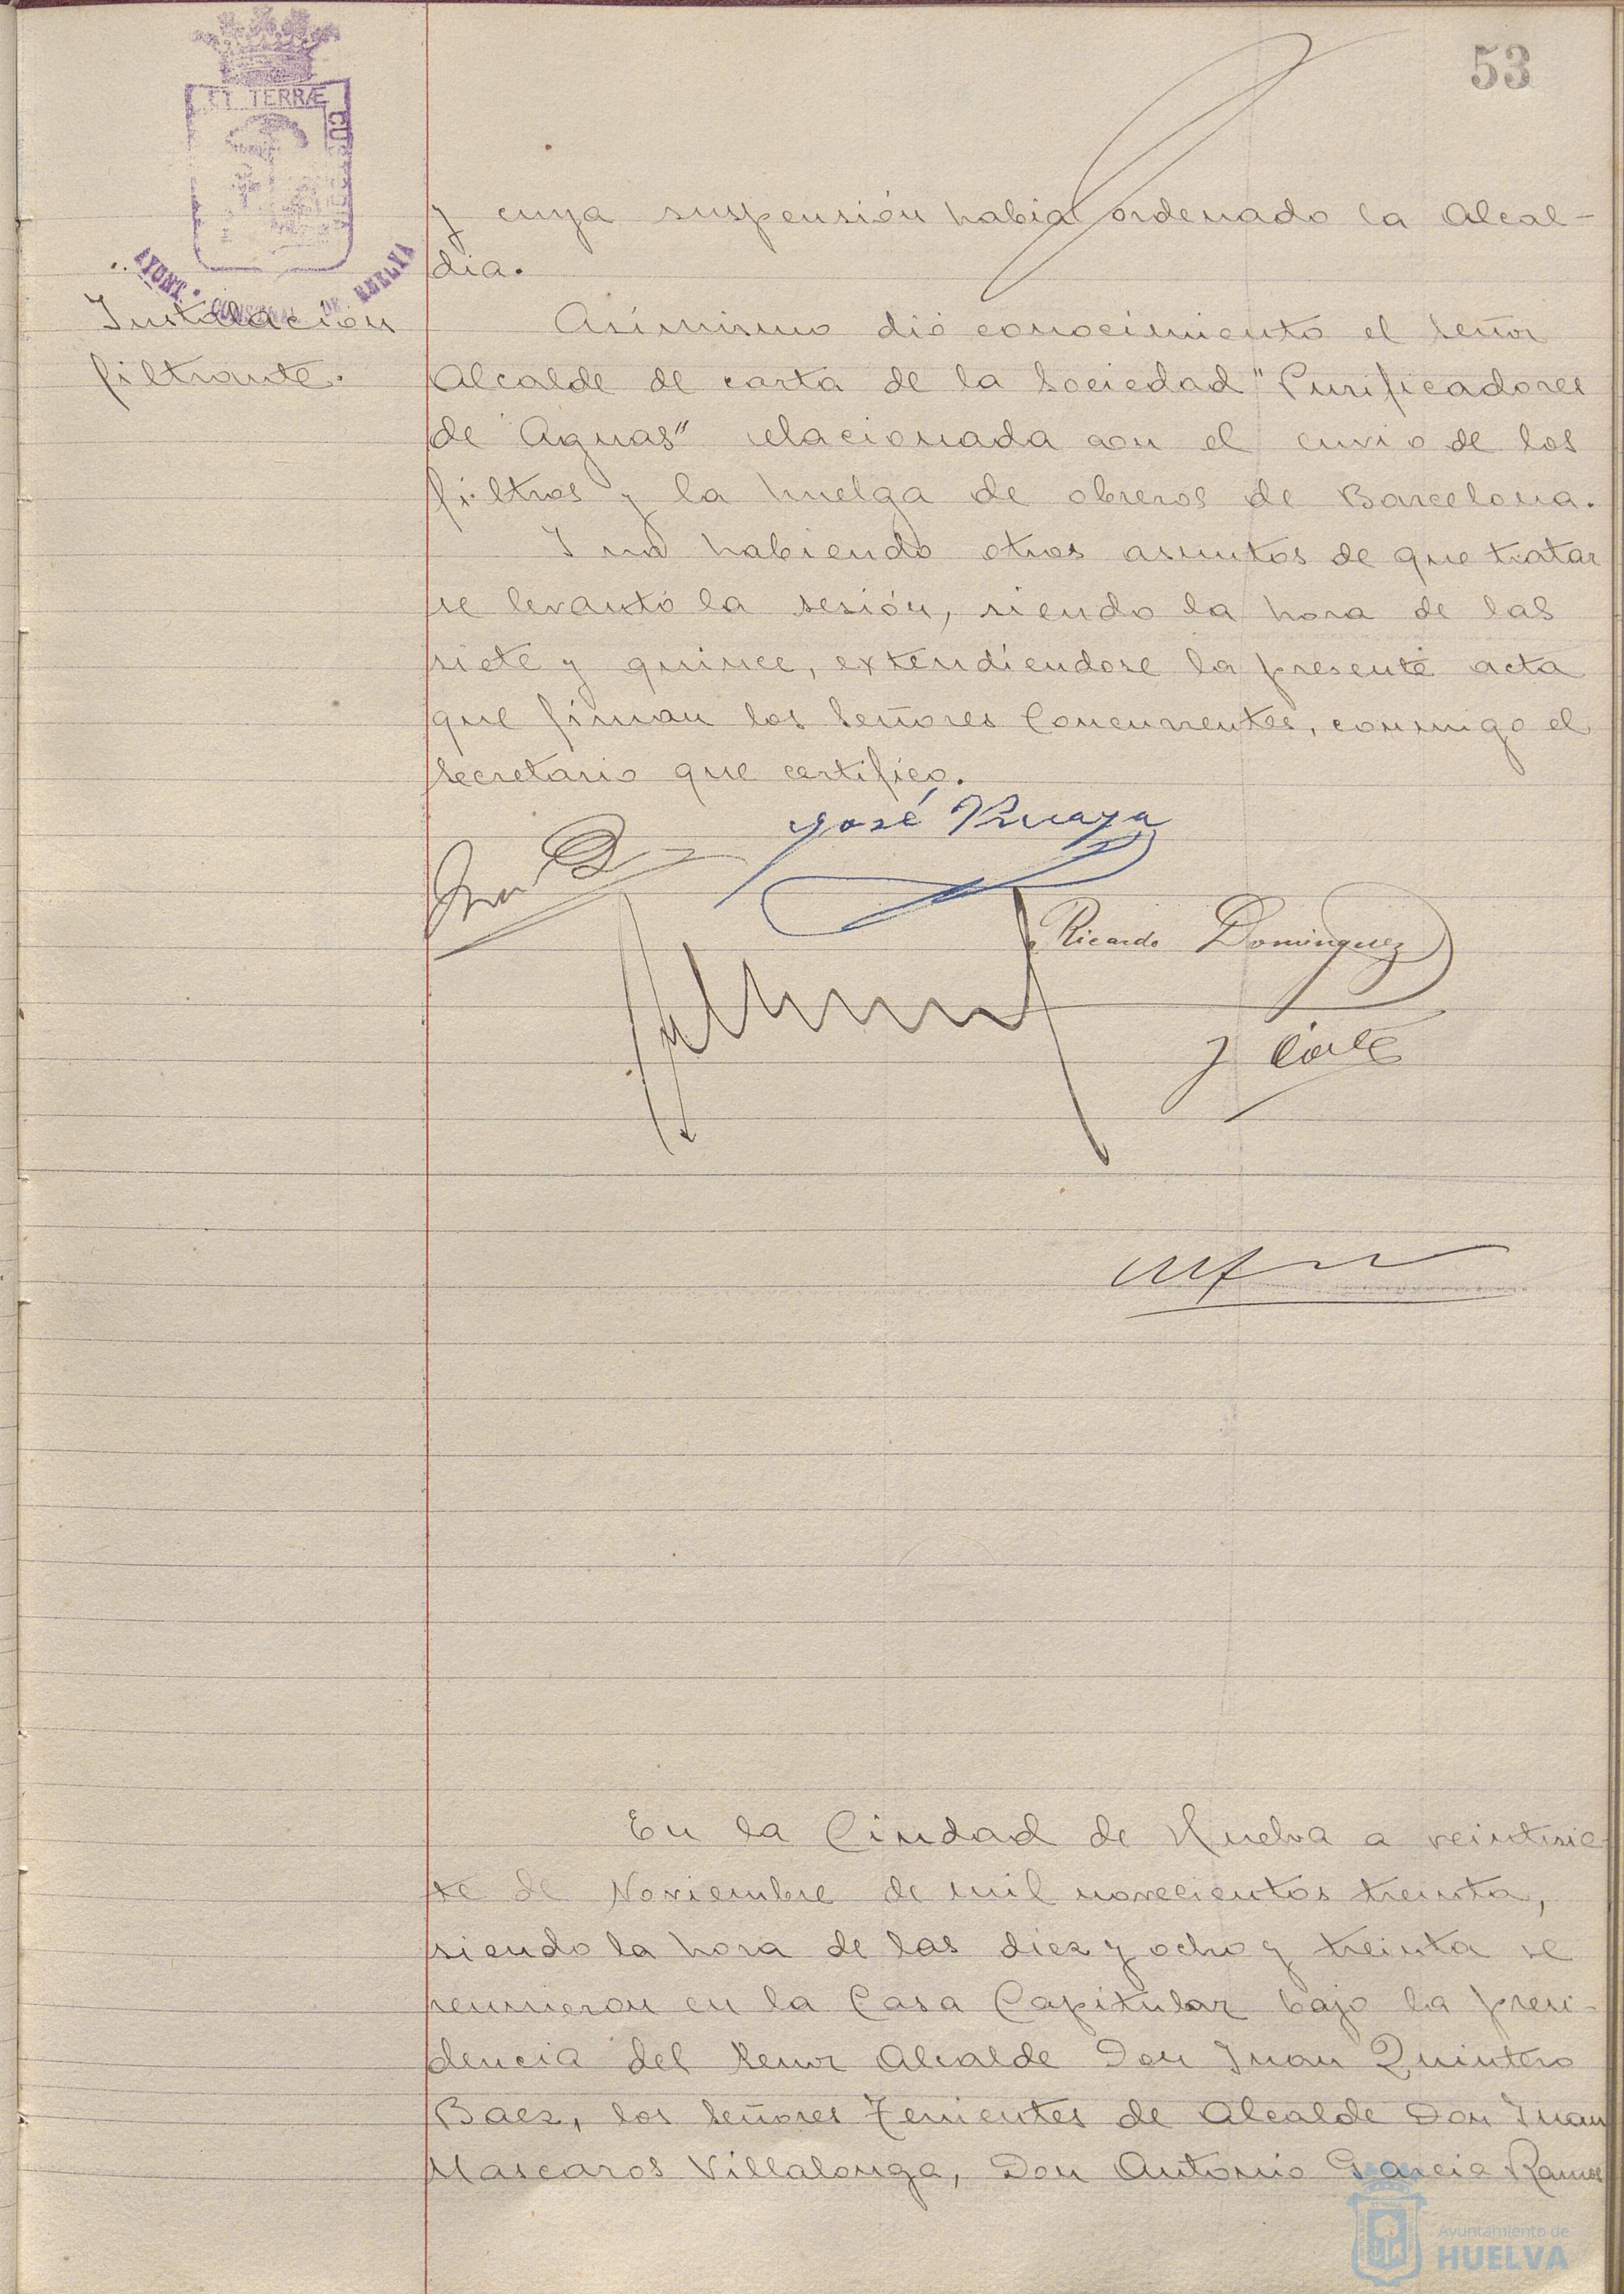 53
ET TERRÆ
CUS
AYUNT. DE HUELVA
y cuya suspensión había ordenado la Alcal-
día.
Instalación
filtrante.
Asímismo dió conocimiento el señor
Alcalde de carta de la Sociedad "Purificadores
de Aguas" relacionada con el envio de los
filtros y la huelga de obreros de Barcelona.
Y no habiendo otros asuntos de que tratar
se levantó la sesión, siendo la hora de las
siete y quince, extendiendose la presente acta
que firman los Señores Concurrentes, conmigo el
Secretario que certifico.
José
Ricardo Dominguez
En la Ciudad de Huelva a veintisie-
te de Noviembre de mil novecientos treinta,
siendo la hora de las diez y ocho y treinta se
reunieron en la Casa Capitular bajo la presi-
dencia del Señor Alcalde Don Juan Quintero
Baez, los Señores Tenientes de Alcalde Don Juan
Mascaros Villalonga, Don Antonio Garcia Ramos
Ayuntamiento de
HUELVA